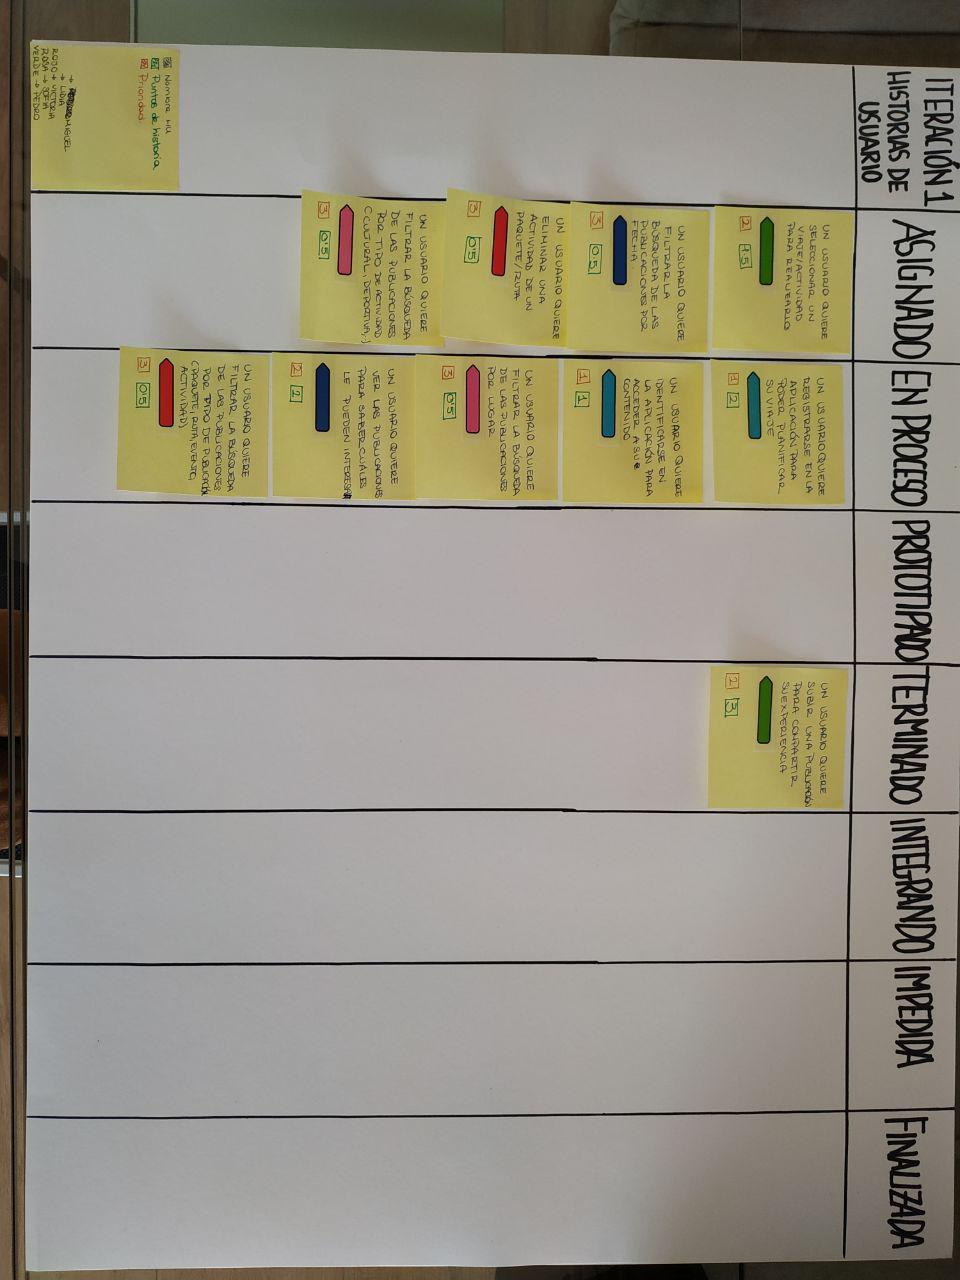 ITERACIÓN 1
HISTORIAS DE
USUARIO
ASIGNADO
EN PROCESO
PROTOTIPADO
TERMINADO
INTEGRANDO
IMPEDIDA
FINALIZADA
UN USUARIO QUIERE
SELECCIONAR UN
VIAJE/ACTIVIDAD
PARA REALIZARLO
2 1.5
UN USUARIO QUIERE
FILTRAR LA
BÚSQUEDA DE LAS
PUBLICACIONES POR
FECHA
3 0.5
UN USUARIO QUIERE
ELIMINAR UNA
ACTIVIDAD DE UN
PAQUETE/RUTA
3 0'5
UN USUARIO QUIERE
FILTRAR LA BÚSQUEDA
DE LAS PUBLICACIONES
POR TIPO DE ACTIVIDAD
(CULTURAL, DEPORTIVA,.)
3 0'5
UN USUARIO QUIERE
REGISTRARSE EN LA
APLICACIÓN PARA
PODER PLANIFICAR
SU VIAJE
1 2
UN USUARIO QUIERE
IDENTIFICARSE EN
LA APLICACIÓN PARA
ACCEDER A SU
CONTENIDO
1 1
UN USUARIO QUIERE
FILTRAR LA BÚSQUEDA
DE LAS PUBLICACIONES
POR LUGAR
3 0'5
UN USUARIO QUIERE
VER LAS PUBLICACIONES
PARA SABER CUALES
LE PUEDEN INTERESAR
2 2
UN USUARIO QUIERE
FILTRAR LA BÚSQUEDA
DE LAS PUBLICACIONES
POR TIPO DE PUBLICACIÓN
(PAQUETE, RUTA, EVENTO,
ACTIVIDAD)
3 0'5
UN USUARIO QUIERE
SUBIR UNA PUBLICACIÓN
PARA COMPARTIR
SU EXPERIENCIA
2 3
Nombre HU
Puntos de historia
Prioridad
→ MIGUEL
→ LIDIA
ROJO → VICTORIA
ROSA → SOFIA
VERDE → PEDRO